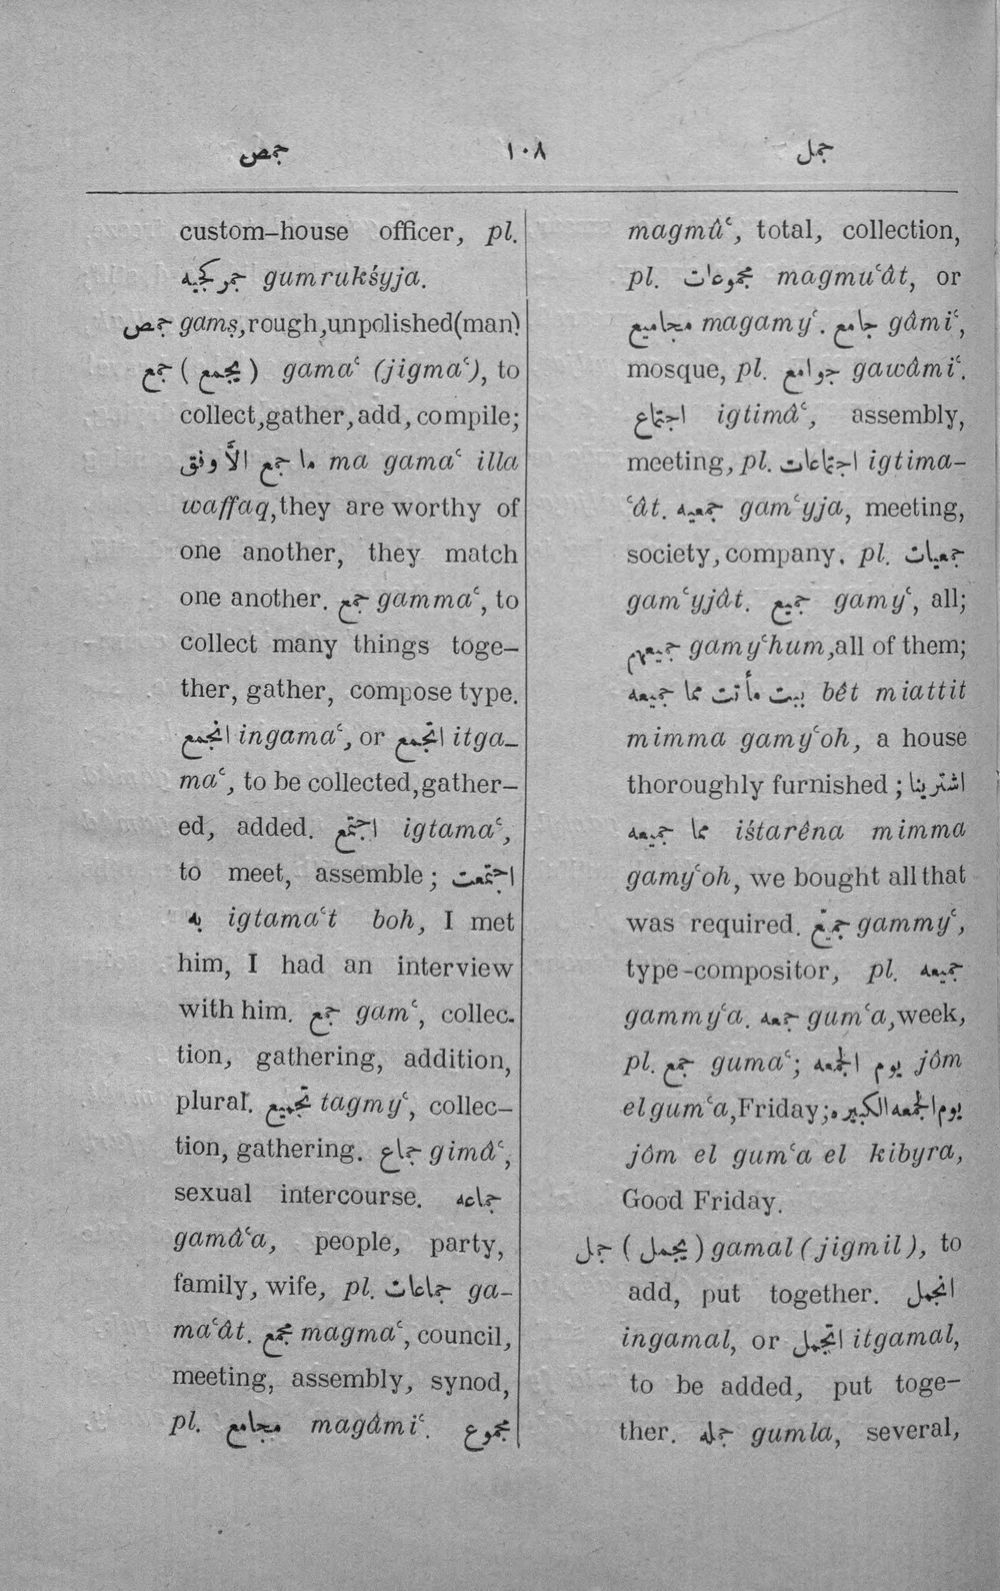 جمص ١٠٨ جمل
custom-house officer, pl.
جمركجيه gumrukśyja.
جمص gamṣ, rough, unpolished (man)
جمع (يجمع) gamaʿ (jigmaʿ), to
collect, gather, add, compile;
ما جمع الاّ وفق ma gamaʿ illa
waffaq, they are worthy of
one another, they match
one another. جمع gammaʿ, to
collect many things toge-
ther, gather, compose type.
انجمع ingamaʿ, or اتجمع itga-
maʿ, to be collected, gather-
ed, added. اجتمع igtamaʿ,
to meet, assemble; اجتمعت
به igtamaʿt boh, I met
him, I had an interview
with him. جمع gamʿ, collec-
tion, gathering, addition,
plural. تجميع tagmyʿ, collec-
tion, gathering. جماع gimâʿ,
sexual intercourse. جماعه
gamâʿa, people, party,
family, wife, pl. جماعات ga-
maʿât. مجمع magmaʿ, council,
meeting, assembly, synod,
pl. مجامع magâmiʿ. مجموع
magmûʿ, total, collection,
pl. مجموعات magmuʿât, or
مجاميع magamyʿ. جامع gâmiʿ,
mosque, pl. جوامع gawâmiʿ.
اجتماع igtimâʿ, assembly,
meeting, pl. اجتماعات igtima-
ʿât. جمعيه gamʿyja, meeting,
society, company. pl. جمعيات
gamʿyjât. جميع gamyʿ, all;
جميعهم gamyʿhum, all of them;
بيت مأتت مما جميعه bêt miattit
mimma gamyʿoh, a house
thoroughly furnished; اشترينا
مما جميعه iśtarêna mimma
gamyʿoh, we bought all that
was required. جمّيع gammyʿ,
type-compositor, pl. جميعه
gammyʿa. جمعه gumʿa, week,
pl. جمع gumaʿ; يوم الجمعه jôm
el gumʿa, Friday; يوم الجمعه الكبيره
jôm el gumʿa el kibyra,
Good Friday.
جمل (يجمل) gamal (jigmil), to
add, put together. انجمل
ingamal, or اتجمل itgamal,
to be added, put toge-
ther. جمله gumla, several,